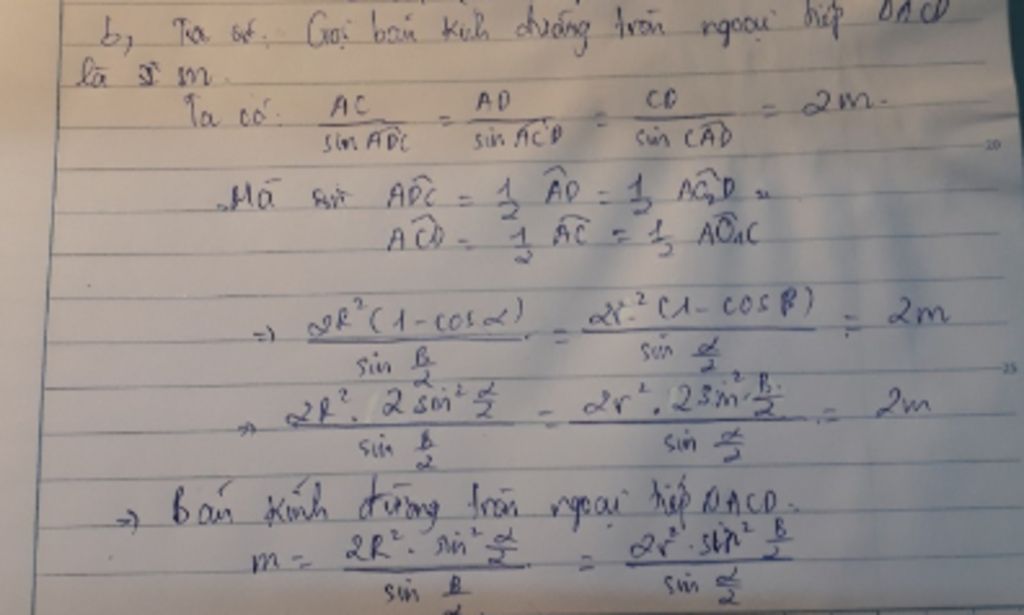 b, Ta sử. Gọi bán kính đường tròn ngoại tiếp ΔACD
là m.
Ta có: AC / sin ADC = AD / sin ACD = CD / sin CAD = 2m.
Mà ADC = 1/2 AD = 1/2 AO₂D
ACD = 1/2 AC = 1/2 AO₁C
=> 2R²(1-cos α) / sin β/2 = 2r²(1-cos β) / sin α/2 = 2m
=> 2R². 2 sin² α/2 / sin β/2 = 2r². 2 sin² β/2 / sin α/2 = 2m
=> Bán kính đường tròn ngoại tiếp ΔACD.
m = 2R². sin² α/2 / sin β/2 = 2r². sin² β/2 / sin α/2